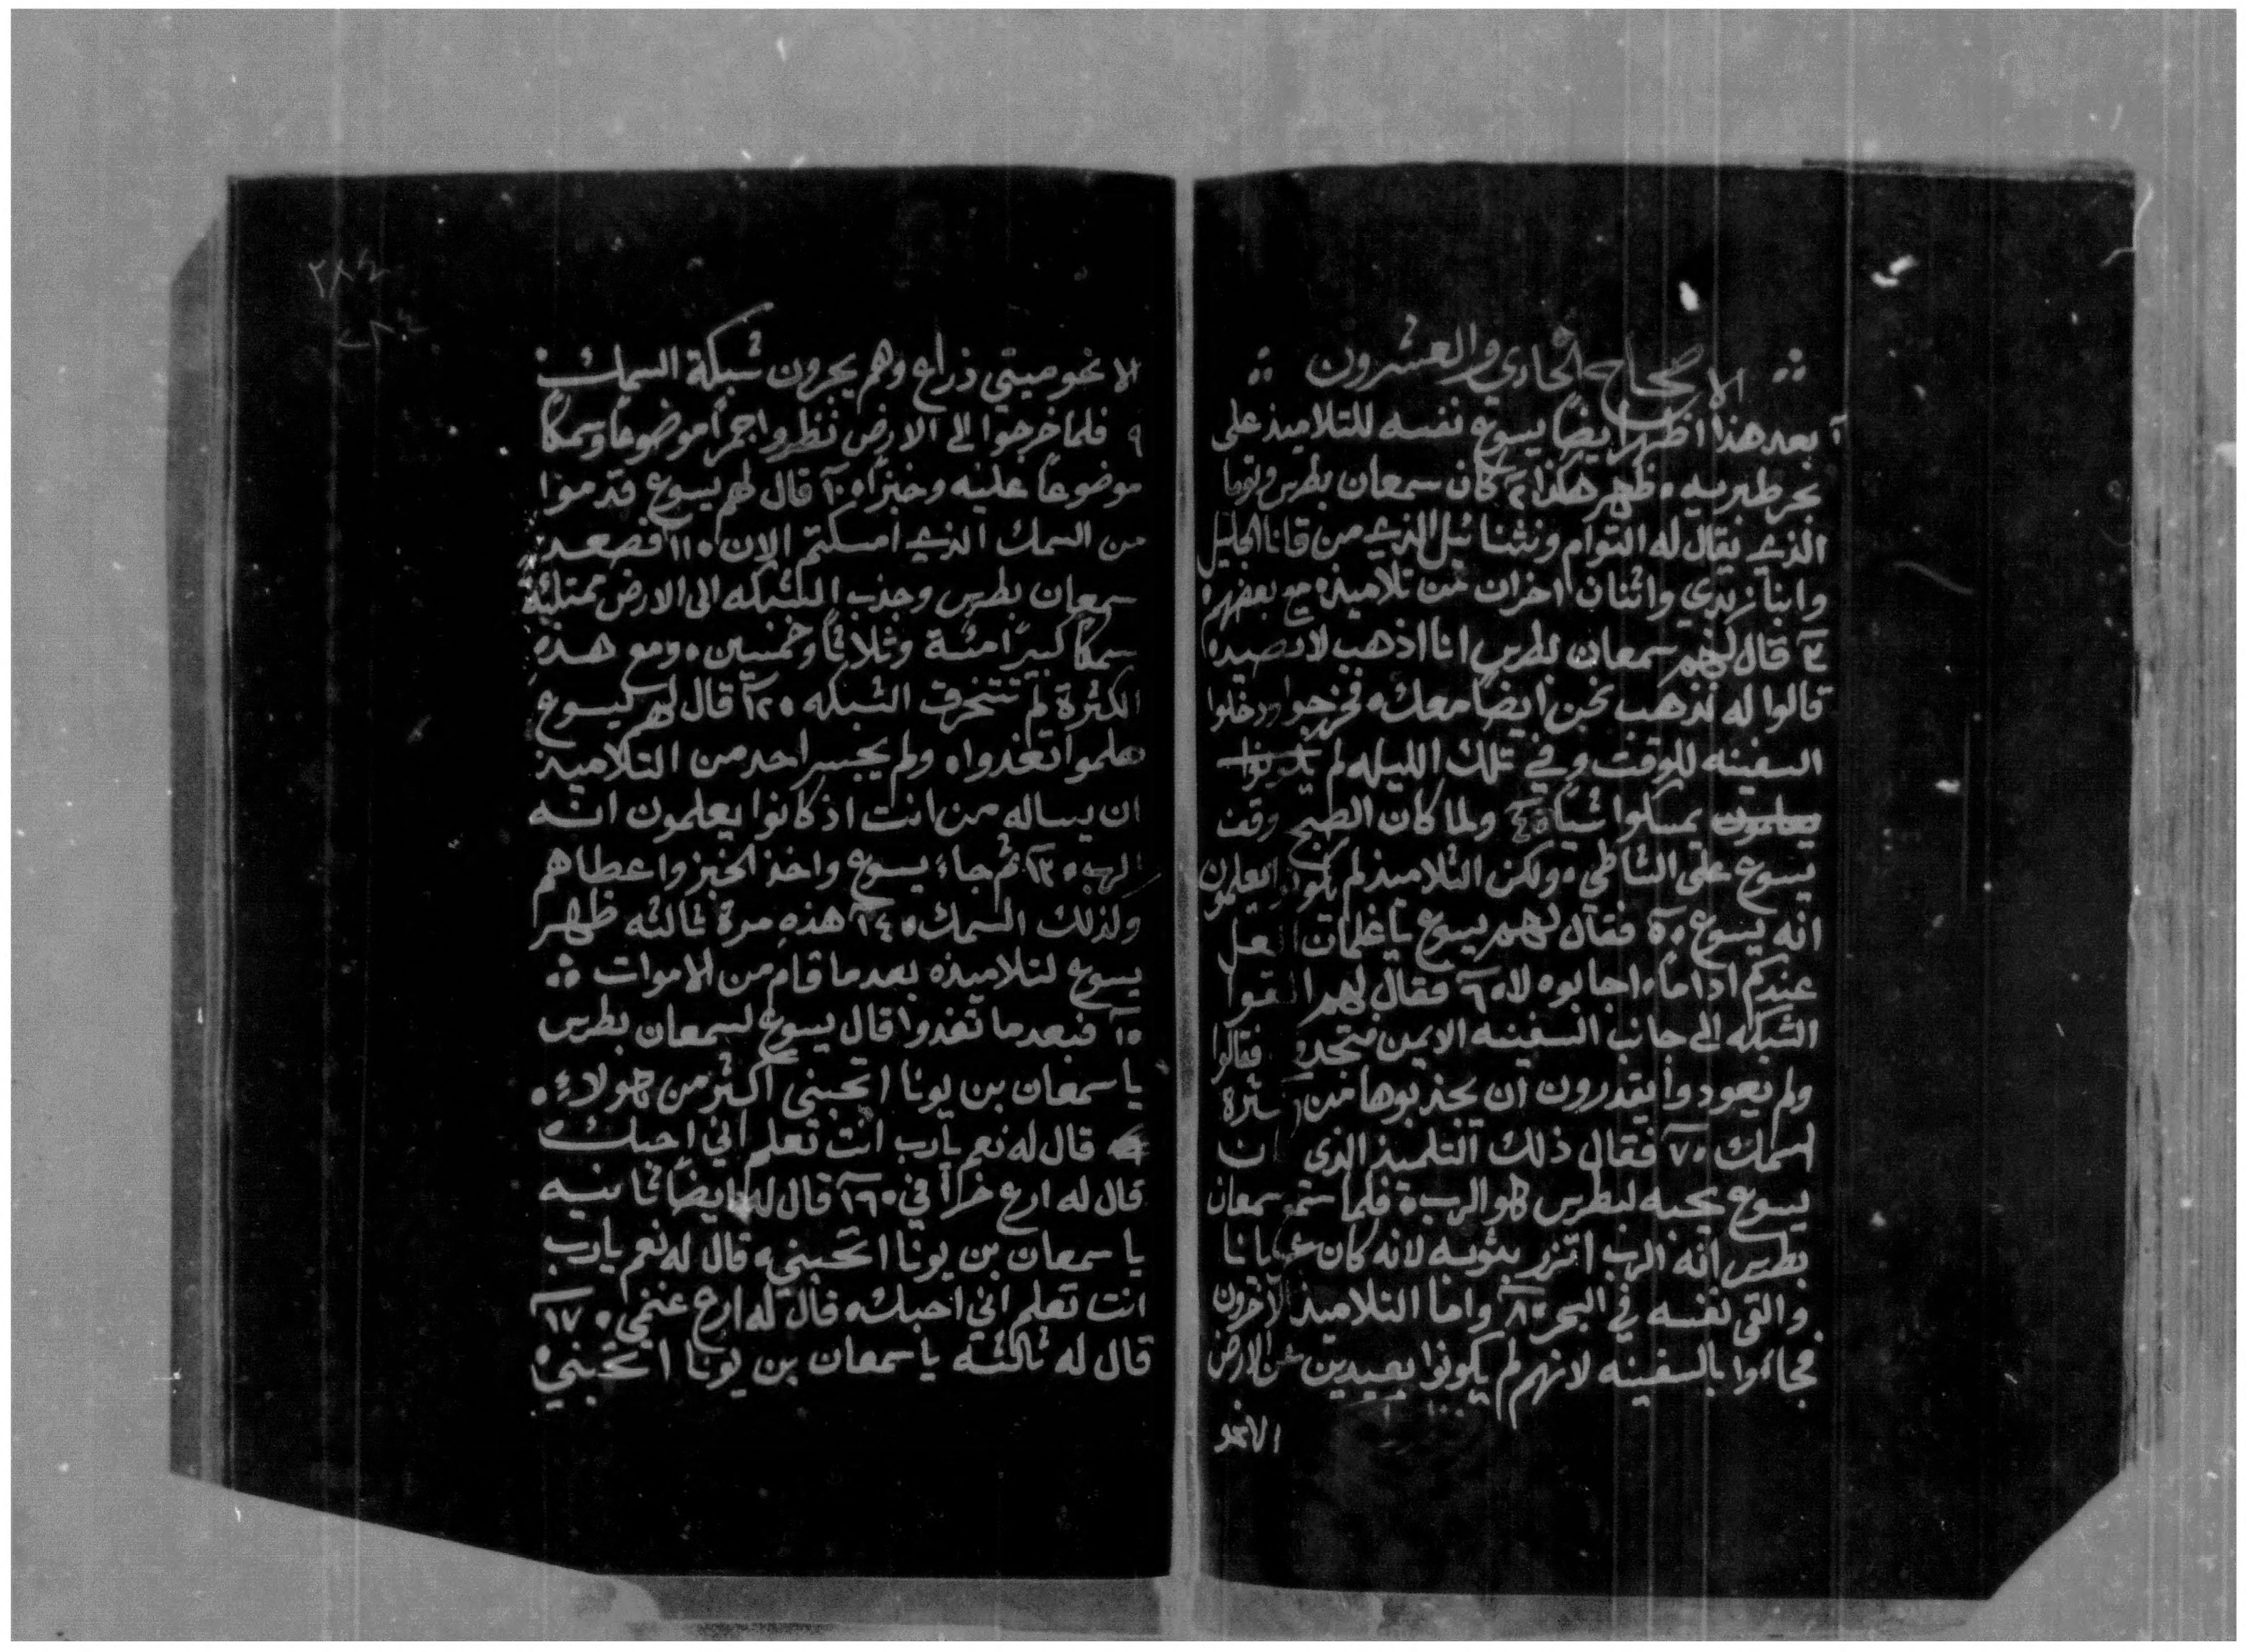 الاصحاح الحادي والعشرون
١ بعد هذا اظهر ايضاً يسوع نفسه للتلاميذ على
بحر طبريه . ظهر هكذا ٢ كان سمعان بطرس وتوما
الذي يقال له التوام ونثنائيل الذي من قانا الجليل
وابنا زبدي واثنان اخران من تلاميذه مع بعضهم .
٣ قال لهم سمعان بطرس انا اذهب لاتصيد .
قالوا له نذهب نحن ايضا معك . فخرجوا ودخلوا
السفينه للوقت وفي تلك الليله لم يكونوا
يعلمون يمسكوا شيا . ٤ ولما كان الصبح وقف
يسوع على الشاطي . ولكن التلاميذ لم يكونوا يعلمون
انه يسوع . ٥ فقال لهم يسوع يا غلمان العل
عندكم اداماً . اجابوه لا . ٦ فقال لهم القوا
الشبكه الى جانب السفينه الايمن فتجدو فقالوا
ولم يعودوا يقدرون ان يجذبوها من كثرة
السمك . ٧ فقال ذلك التلميذ الذي ن
يسوع يحبه لبطرس هو الرب . فلما سمع سمعان
بطرس انه الرب اتزر بثوبه لانه كان عريانا
والقى نفسه في البحر . ٨ واما التلاميذ الآخرون
فجاءوا بالسفينه لانهم لم يكونوا بعيدين عن الارض
الا نحو
٢٨٤
الا نحو ميتي ذراع وهم يجرون شبكة السمك .
٩ فلما خرجوا الى الارض نظروا جمراً موضوعاً وسمكاً
موضوعاً عليه وخبزاً . ١٠ قال لهم يسوع قدموا
من السمك الذي امسكتم الان . ١١ فصعد
سمعان بطرس وجذب الشبكه الى الارض ممتلئة
سمكاً كبيراً مئة وثلاثاً وخمسين . ومع هذه
الكثرة لم تتخرق الشبكه . ١٢ قال لهم يسوع
هلموا تغدوا . ولم يجسر احد من التلاميذ
ان يساله من انت اذ كانوا يعلمون انه
الرب . ١٣ ثم جاء يسوع واخذ الخبز واعطاهم
ولذلك السمك . ١٤ هذه مرة ثالثه ظهر
يسوع لتلاميذه بعد ما قام من الاموات
١٥ فبعد ما تغدوا قال يسوع لسمعان بطرس
يا سمعان بن يونا اتحبني اكثر من هولاء .
قال له نعم يارب انت تعلم اني احبك .
قال له ارع خرافي . ١٦ قال له ايضاً ثانيه
يا سمعان بن يونا اتحبني . قال له نعم يارب
انت تعلم اني احبك . قال له ارع غنمي . ١٧
قال له ثالثة يا سمعان بن يونا اتحبني .